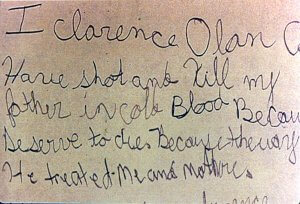 I Clarence Olan
Have shot and Kill my
father in cold Blood Becau
Deserve to die. Because the way
He treated Me and Mother.